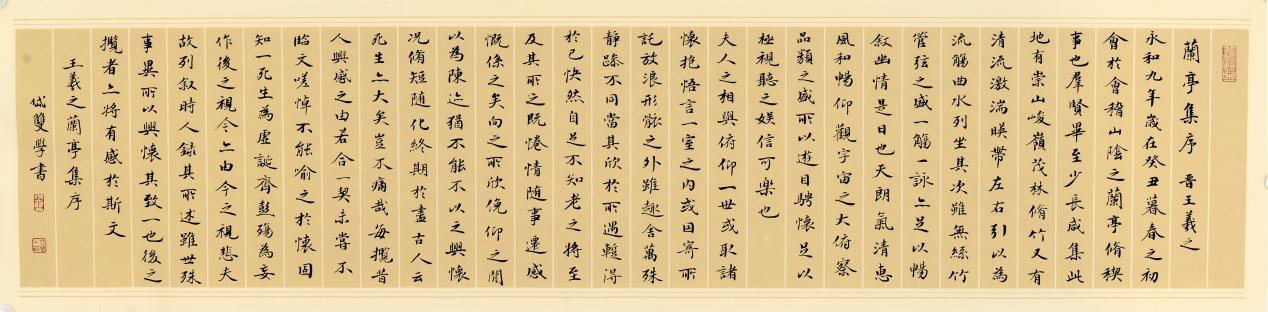 蘭亭集序 晋王羲之
永和九年歲在癸丑暮春之初
會於會稽山陰之蘭亭脩稧
事也羣賢畢至少長咸集此
地有崇山峻嶺茂林脩竹又有
清流激湍暎帶左右引以為
流觴曲水列坐其次雖無絲竹
管弦之盛一觴一詠亦足以暢
敘幽情是日也天朗氣清惠
風和暢仰觀宇宙之大俯察
品類之盛所以遊目騁懷足以
極視聽之娛信可樂也
夫人之相與俯仰一世或取諸
懷抱悟言一室之內或因寄所
託放浪形骸之外雖趣舍萬殊
靜躁不同當其欣於所遇蹔得
於己快然自足不知老之將至
及其所之既惓情隨事遷感
慨係之矣向之所欣俛仰之閒
以為陳迹猶不能不以之興懷
況脩短隨化終期於盡古人云
死生亦大矣豈不痛哉每攬昔
人興感之由若合一契未嘗不
臨文嗟悼不能喻之於懷固
知一死生為虛誕齊彭殤為妄
作後之視今亦由今之視昔悲夫
故列敘時人錄其所述雖世殊
事異所以興懷其致一也後之
攬者亦將有感於斯文
王羲之蘭亭集序
雙學書